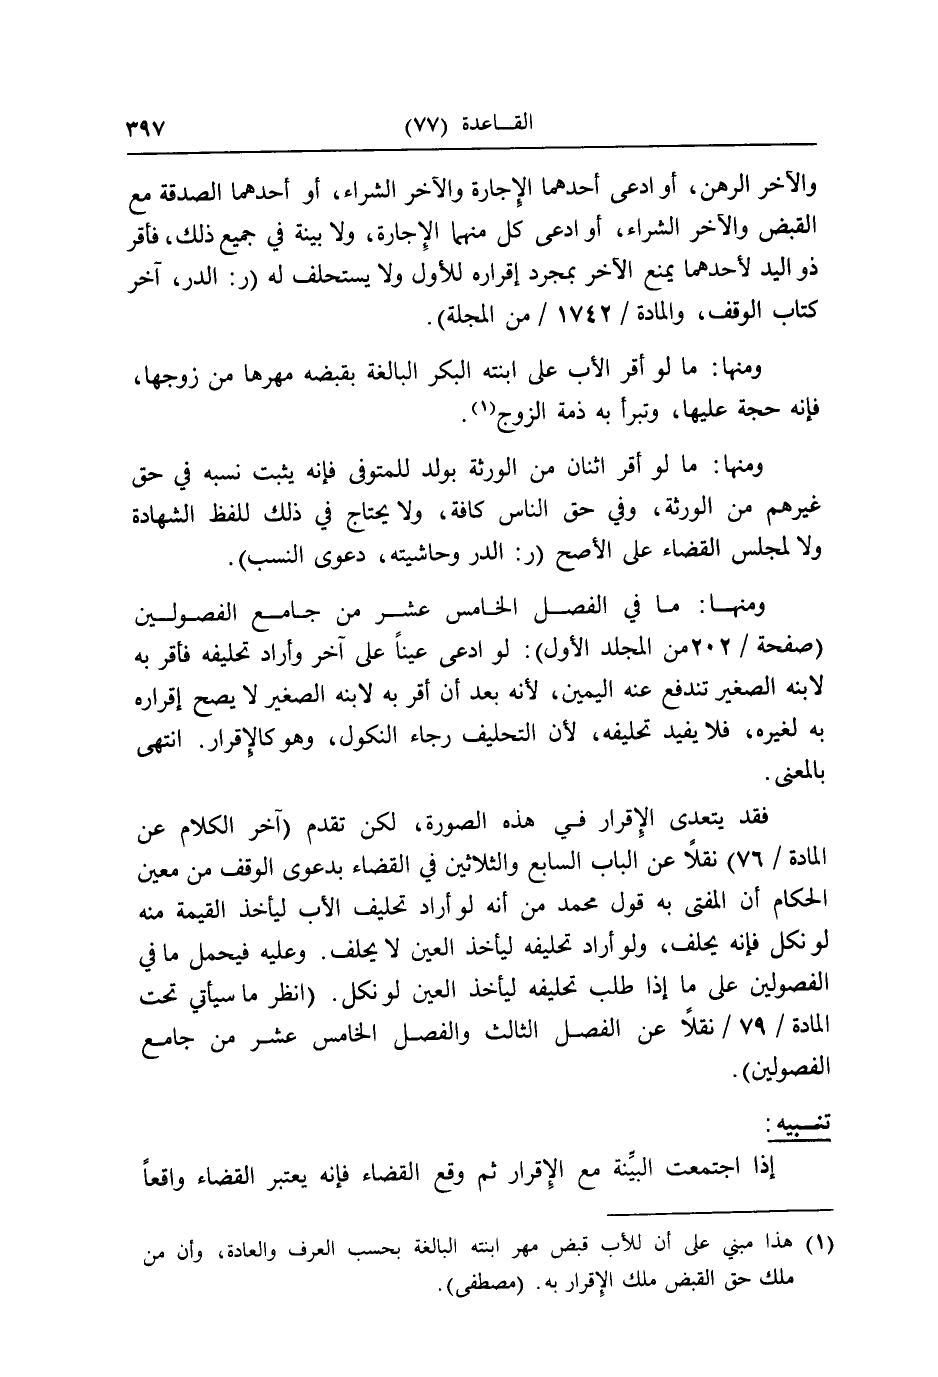 القـــاعدة (٧٧) ٣٩٧
والآخر الرهن، أو ادعى أحدهما الإجارة والآخر الشراء، أو أحدهما الصدقة مع
القبض والآخر الشراء، أو ادعى كل منهما الإجارة، ولا بينة في جميع ذلك، فأقر
ذو اليد لأحدهما يمنع الآخر بمجرد إقراره للأول ولا يستحلف له (ر: الدر، آخر
كتاب الوقف، والمادة / ١٧٤٢ / من المجلة).
ومنها: ما لو أقر الأب على ابنته البكر البالغة بقبضه مهرها من زوجها،
فإنه حجة عليها، وتبرأ به ذمة الزوج(١).
ومنها: ما لو أقر اثنان من الورثة بولد للمتوفى فإنه يثبت نسبه في حق
غيرهم من الورثة، وفي حق الناس كافة، ولا يحتاج في ذلك للفظ الشهادة
ولا لمجلس القضاء على الأصح (ر: الدر وحاشيته، دعوى النسب).
ومنهـا: مـا في الفصـل الخـامس عشـر من جـامـع الفصـولـين
(صفحة / ٢٠٢من المجلد الأول): لو ادعى عيناً على آخر وأراد تحليفه فأقر به
لابنه الصغير تندفع عنه اليمين، لأنه بعد أن أقر به لابنه الصغير لا يصح إقراره
به لغيره، فلا يفيد تحليفه، لأن التحليف رجاء النكول، وهو كالإقرار. انتهى
بالمعنى.
فقد يتعدى الإقرار فـي هذه الصورة، لكن تقدم (آخر الكلام عن
المادة / ٧٦) نقلاً عن الباب السابع والثلاثين في القضاء بدعوى الوقف من معين
الحكام أن المفتى به قول محمد من أنه لو أراد تحليف الأب ليأخذ القيمة منه
لو نكل فإنه يحلف، ولو أراد تحليفه ليأخذ العين لا يحلف. وعليه فيحمل ما في
الفصولين على ما إذا طلب تحليفه ليأخذ العين لو نكل. (انظر ما سيأتي تحت
المادة / ٧٩ / نقلاً عن الفصـل الثالث والفصـل الخامس عشـر من جامـع
الفصولين).
تنـــبيه:
إذا اجتمعت البيِّنة مع الإقرار ثم وقع القضاء فإنه يعتبر القضاء واقعاً
(١) هذا مبني على أن للأب قبض مهر ابنته البالغة بحسب العرف والعادة، وأن من
ملك حق القبض ملك الإقرار به. (مصطفى).